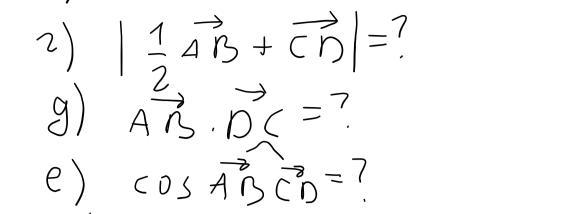 г) | 1/2 AB⃗ + CD⃗ | = ?
д) AB⃗ . DC⃗ = ?
е) cos AB⃗ ^ CD⃗ = ?